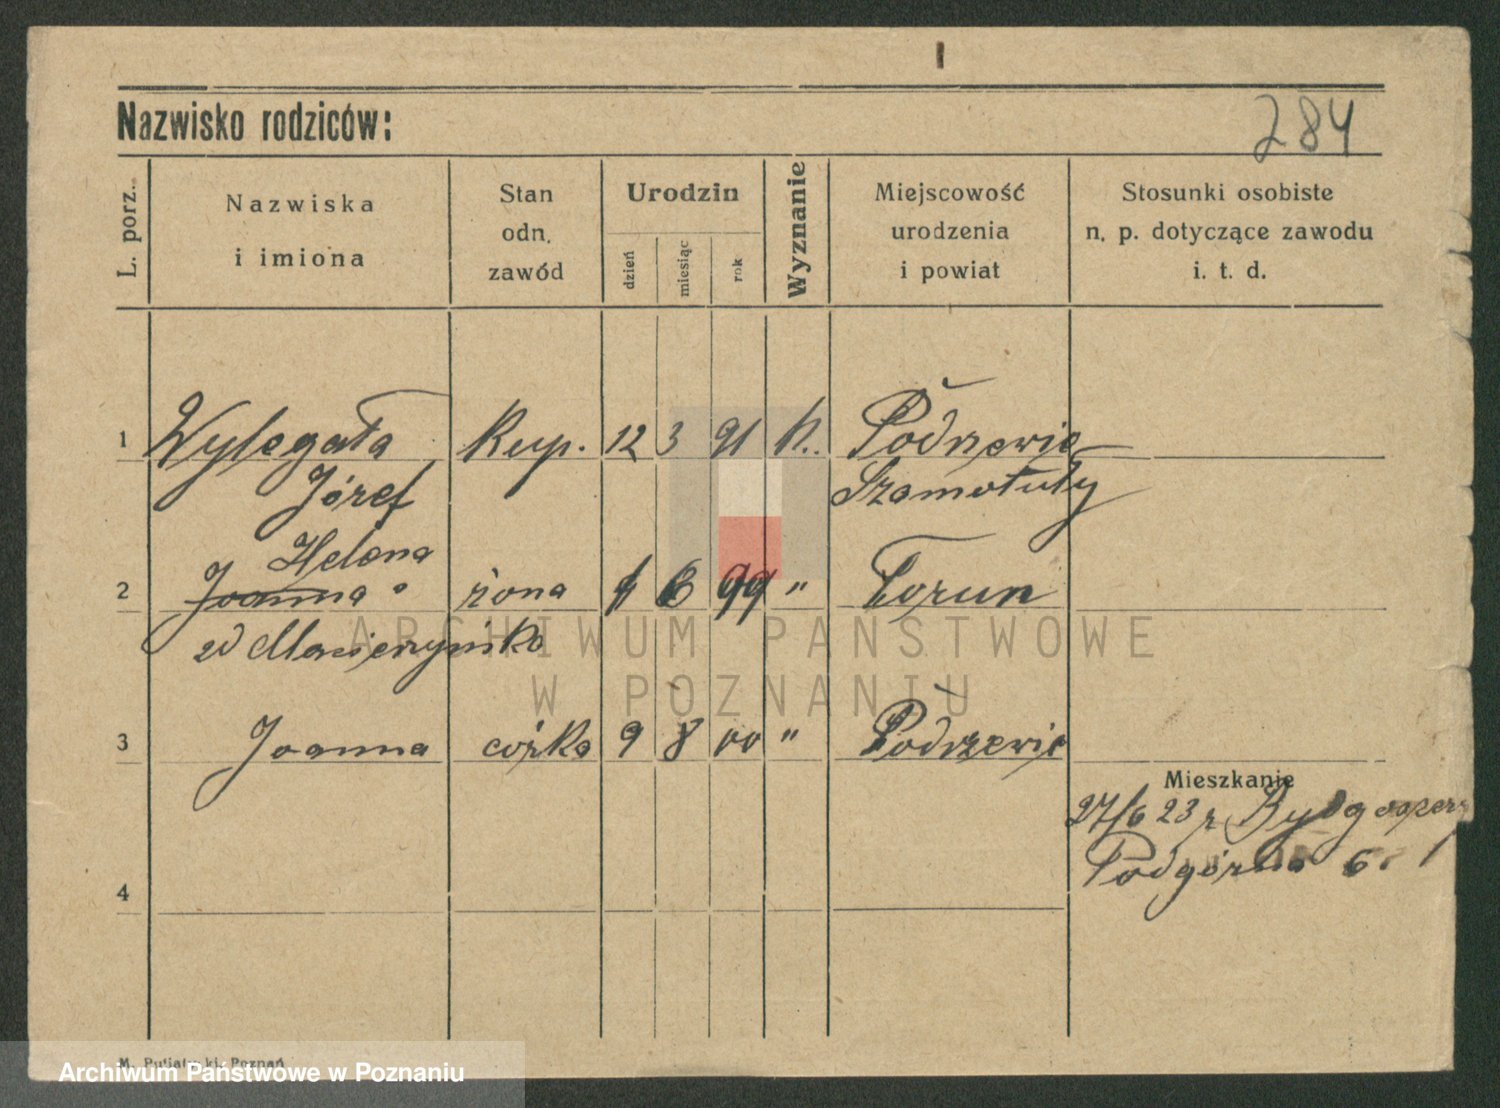 284
Nazwisko rodziców:
L. porz.
Nazwiska
i imiona
Stan
odn.
zawód
Urodzin
dzień
miesiąc
rok
Wyznanie
Miejscowość
urodzenia
i powiat
Stosunki osobiste
n. p. dotyczące zawodu
i. t. d.
1 Wylegała Kup. 12 3 91 k. Podrzewie
Józef Szamotuły
Helena
2 Joanna żona 6 99 " Torun
zd
3 Joanna córka 9 8 00 " Podrzewie
Mieszkanie
27/6 23 r Bydgoszcz
Podgórna 6
4
ARCHIWUM PAŃSTWOWE
W POZNANIU
Poznań
Archiwum Państwowe w Poznaniu